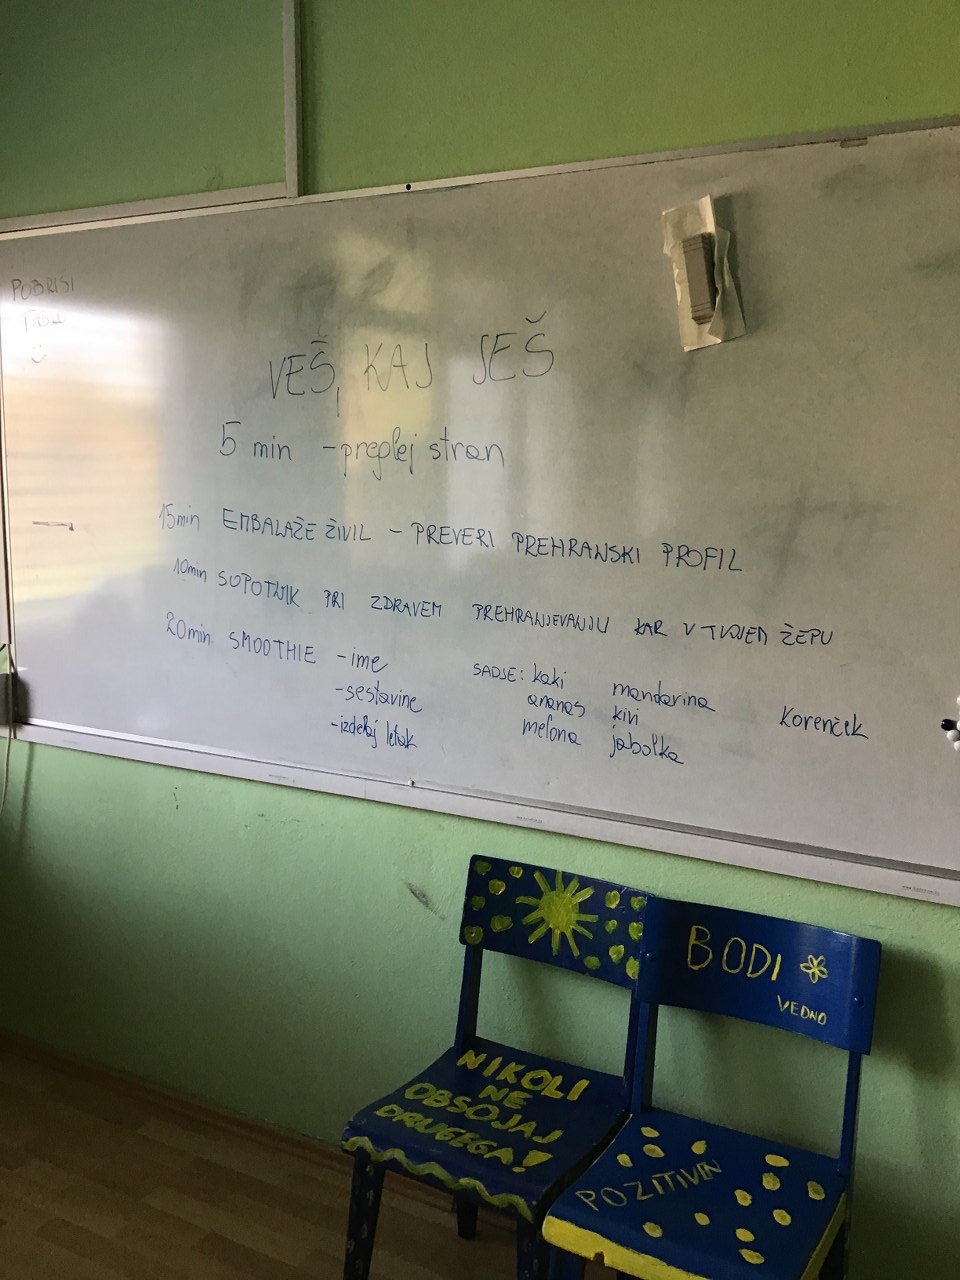 POBRIŠI
VEŠ, KAJ JEŠ
5 min - preglej stran
15min EMBALAŽE ŽIVIL - PREVERI PREHRANSKI PROFIL
10min SOPOTNIK PRI ZDRAVEM PREHRANJEVANJU KAR V TVOJEM ŽEPU
20min SMOOTHIE - ime
- sestavine
- izdelaj letak
SADJE: kaki mandarina
ananas kivi
melona jabolka
Korenček
BODI
VEDNO
POZITIVEN
NIKOLI
NE
OBSOJAJ
DRUGEGA!